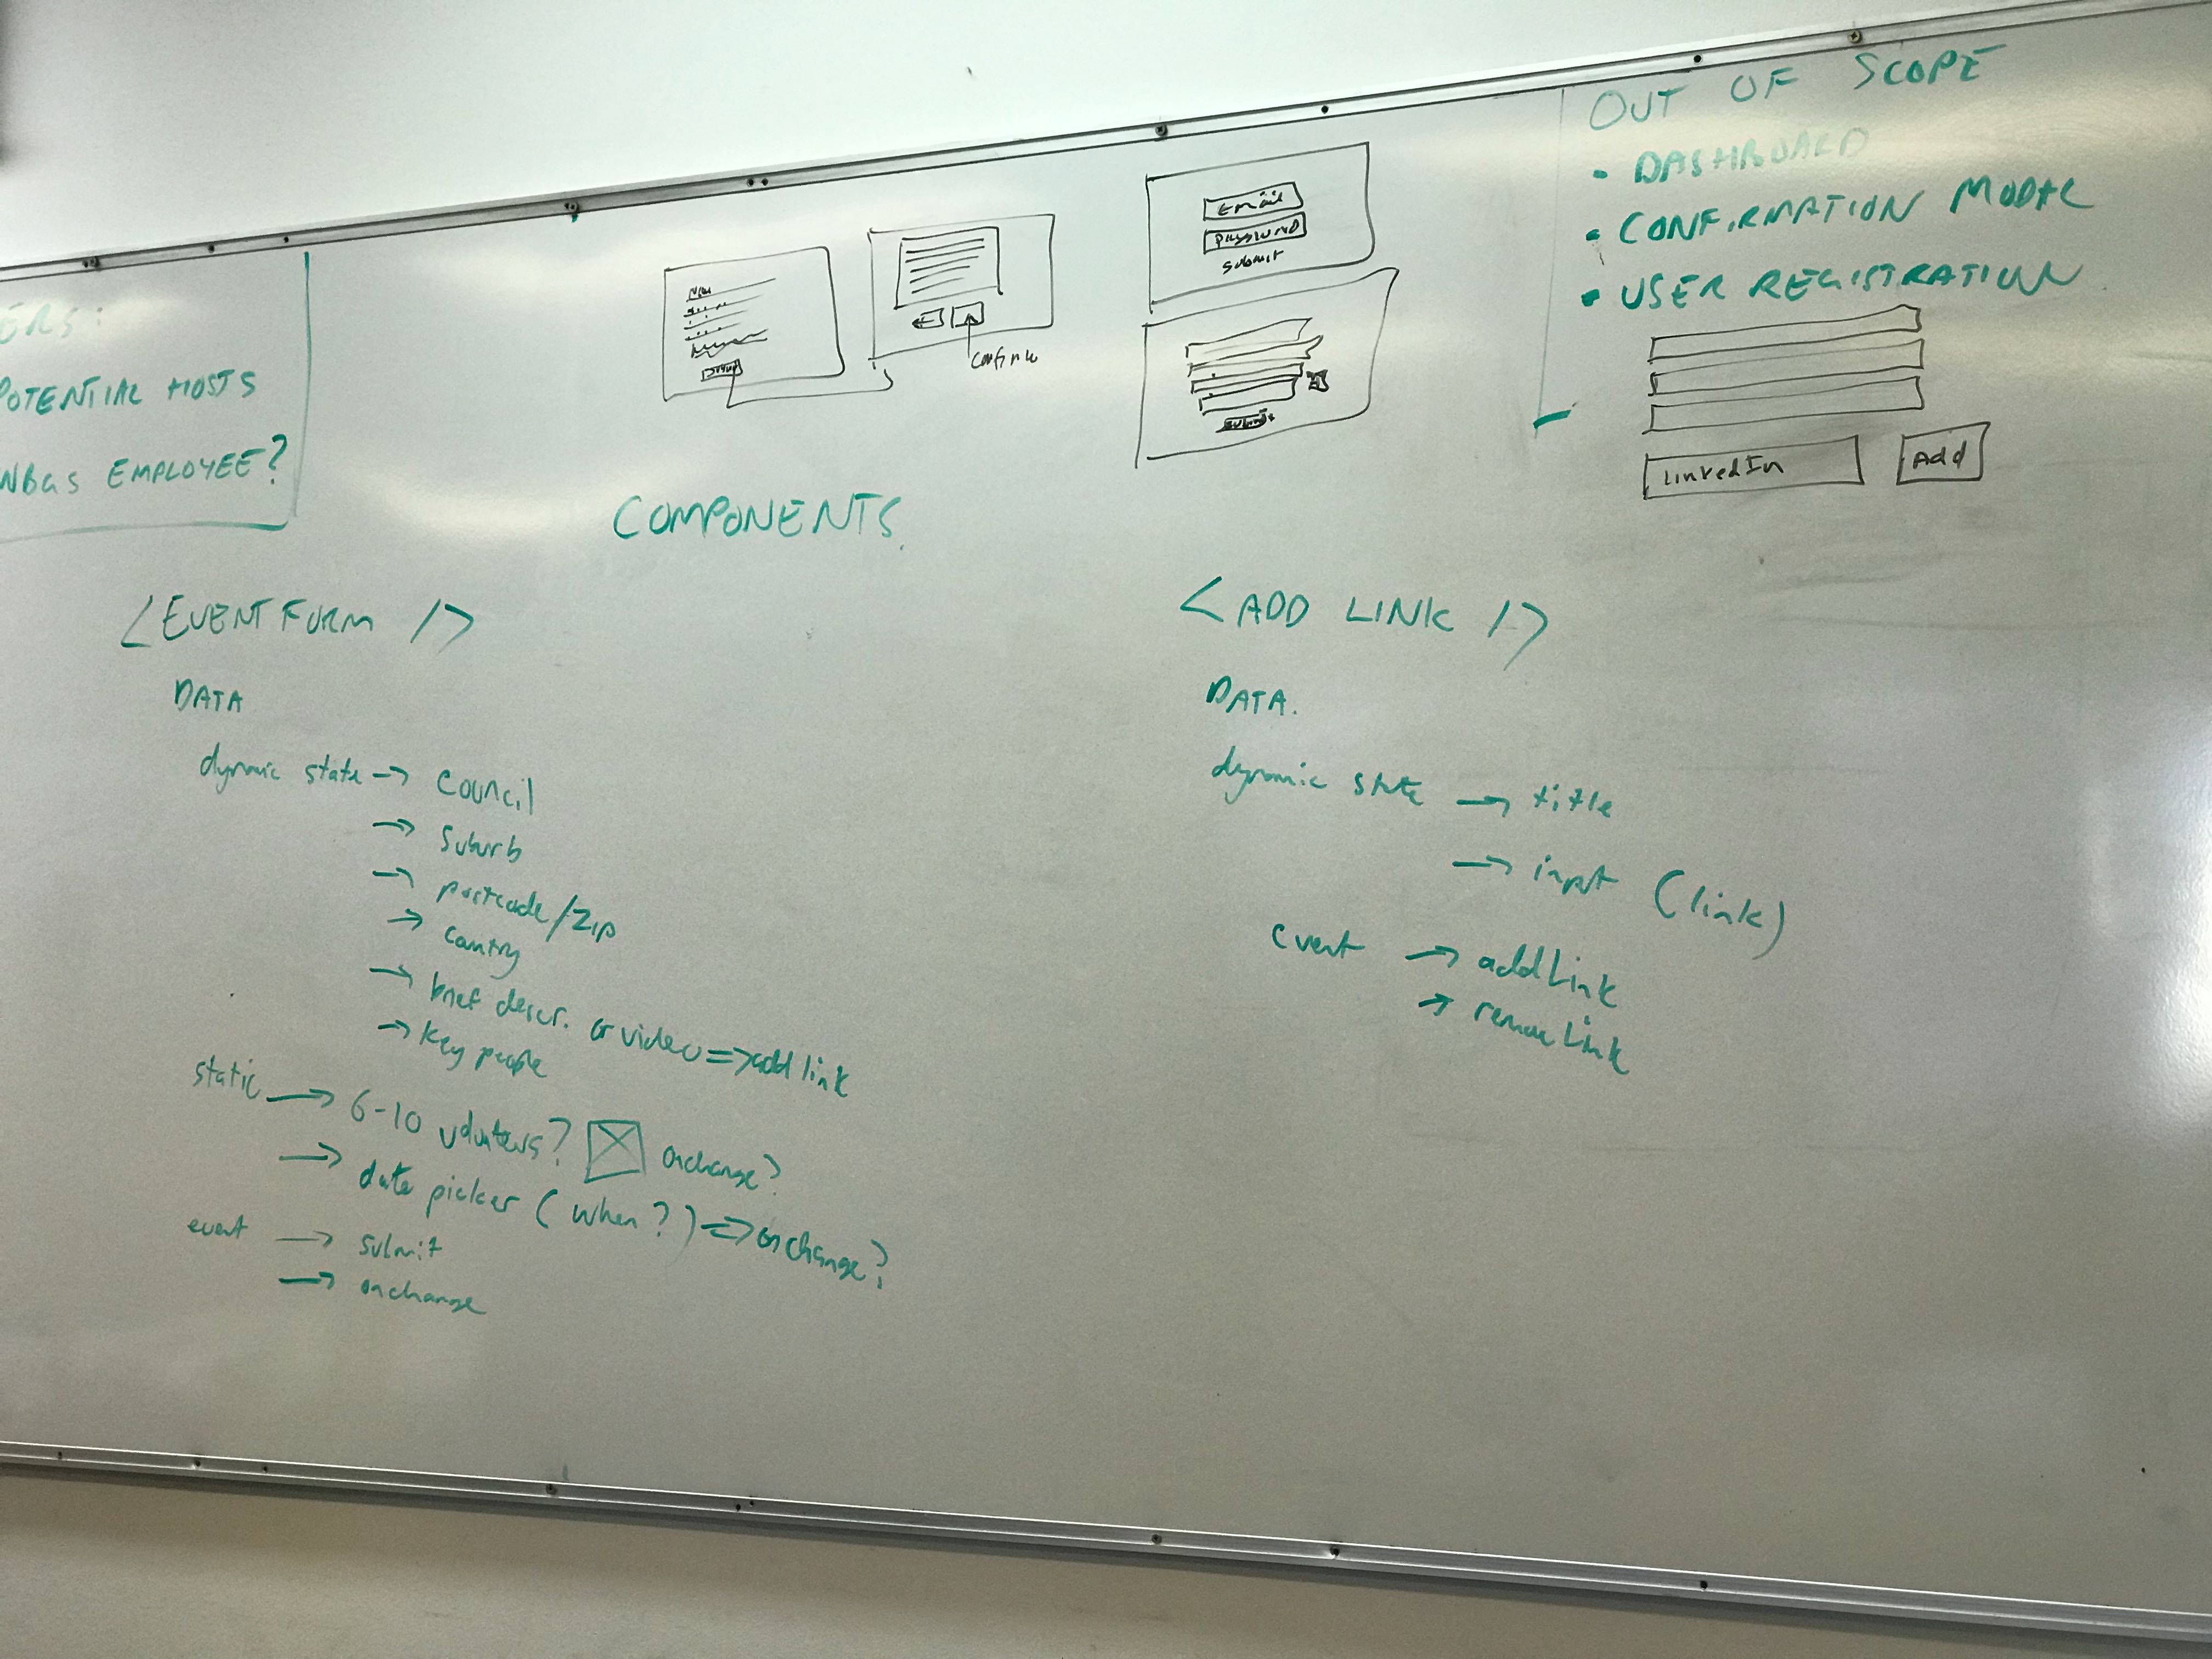 ERS:
POTENTIAL HOSTS
EMPLOYEE?
confirm
Email
Password
submit
submit
OUT OF SCOPE
• DASHBOARD
• CONFIRMATION MODAL
• USER REGISTRATION
LinkedIn
Add
COMPONENTS
<EVENT FORM />
DATA
dynamic state → council
→ suburb
→ postcode/zip
→ country
→ brief descr. or video => add link
→ key people
static → 6-10 volunteers? onchange?
→ date picker (when?) => onchange?
event → submit
→ onchange
<ADD LINK />
DATA.
dynamic state → title
→ input (link)
event → addLink
→ remove Link